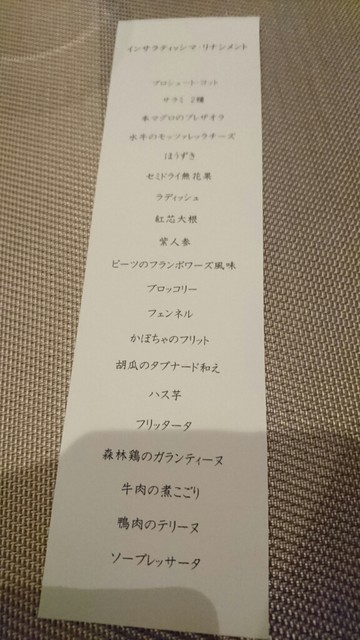 インサラティッシマ・リナシメント
プロシュート・コット
サラミ 2種
本マグロのブレザオラ
水牛のモッツァレッラチーズ
ほうずき
セミドライ無花果
ラディッシュ
紅芯大根
紫人参
ビーツのフランボワーズ風味
ブロッコリー
フェンネル
かぼちゃのフリット
胡瓜のタプナード和え
ハス芋
フリッタータ
森林鶏のガランティーヌ
牛肉の煮こごり
鴨肉のテリーヌ
ソープレッサータ